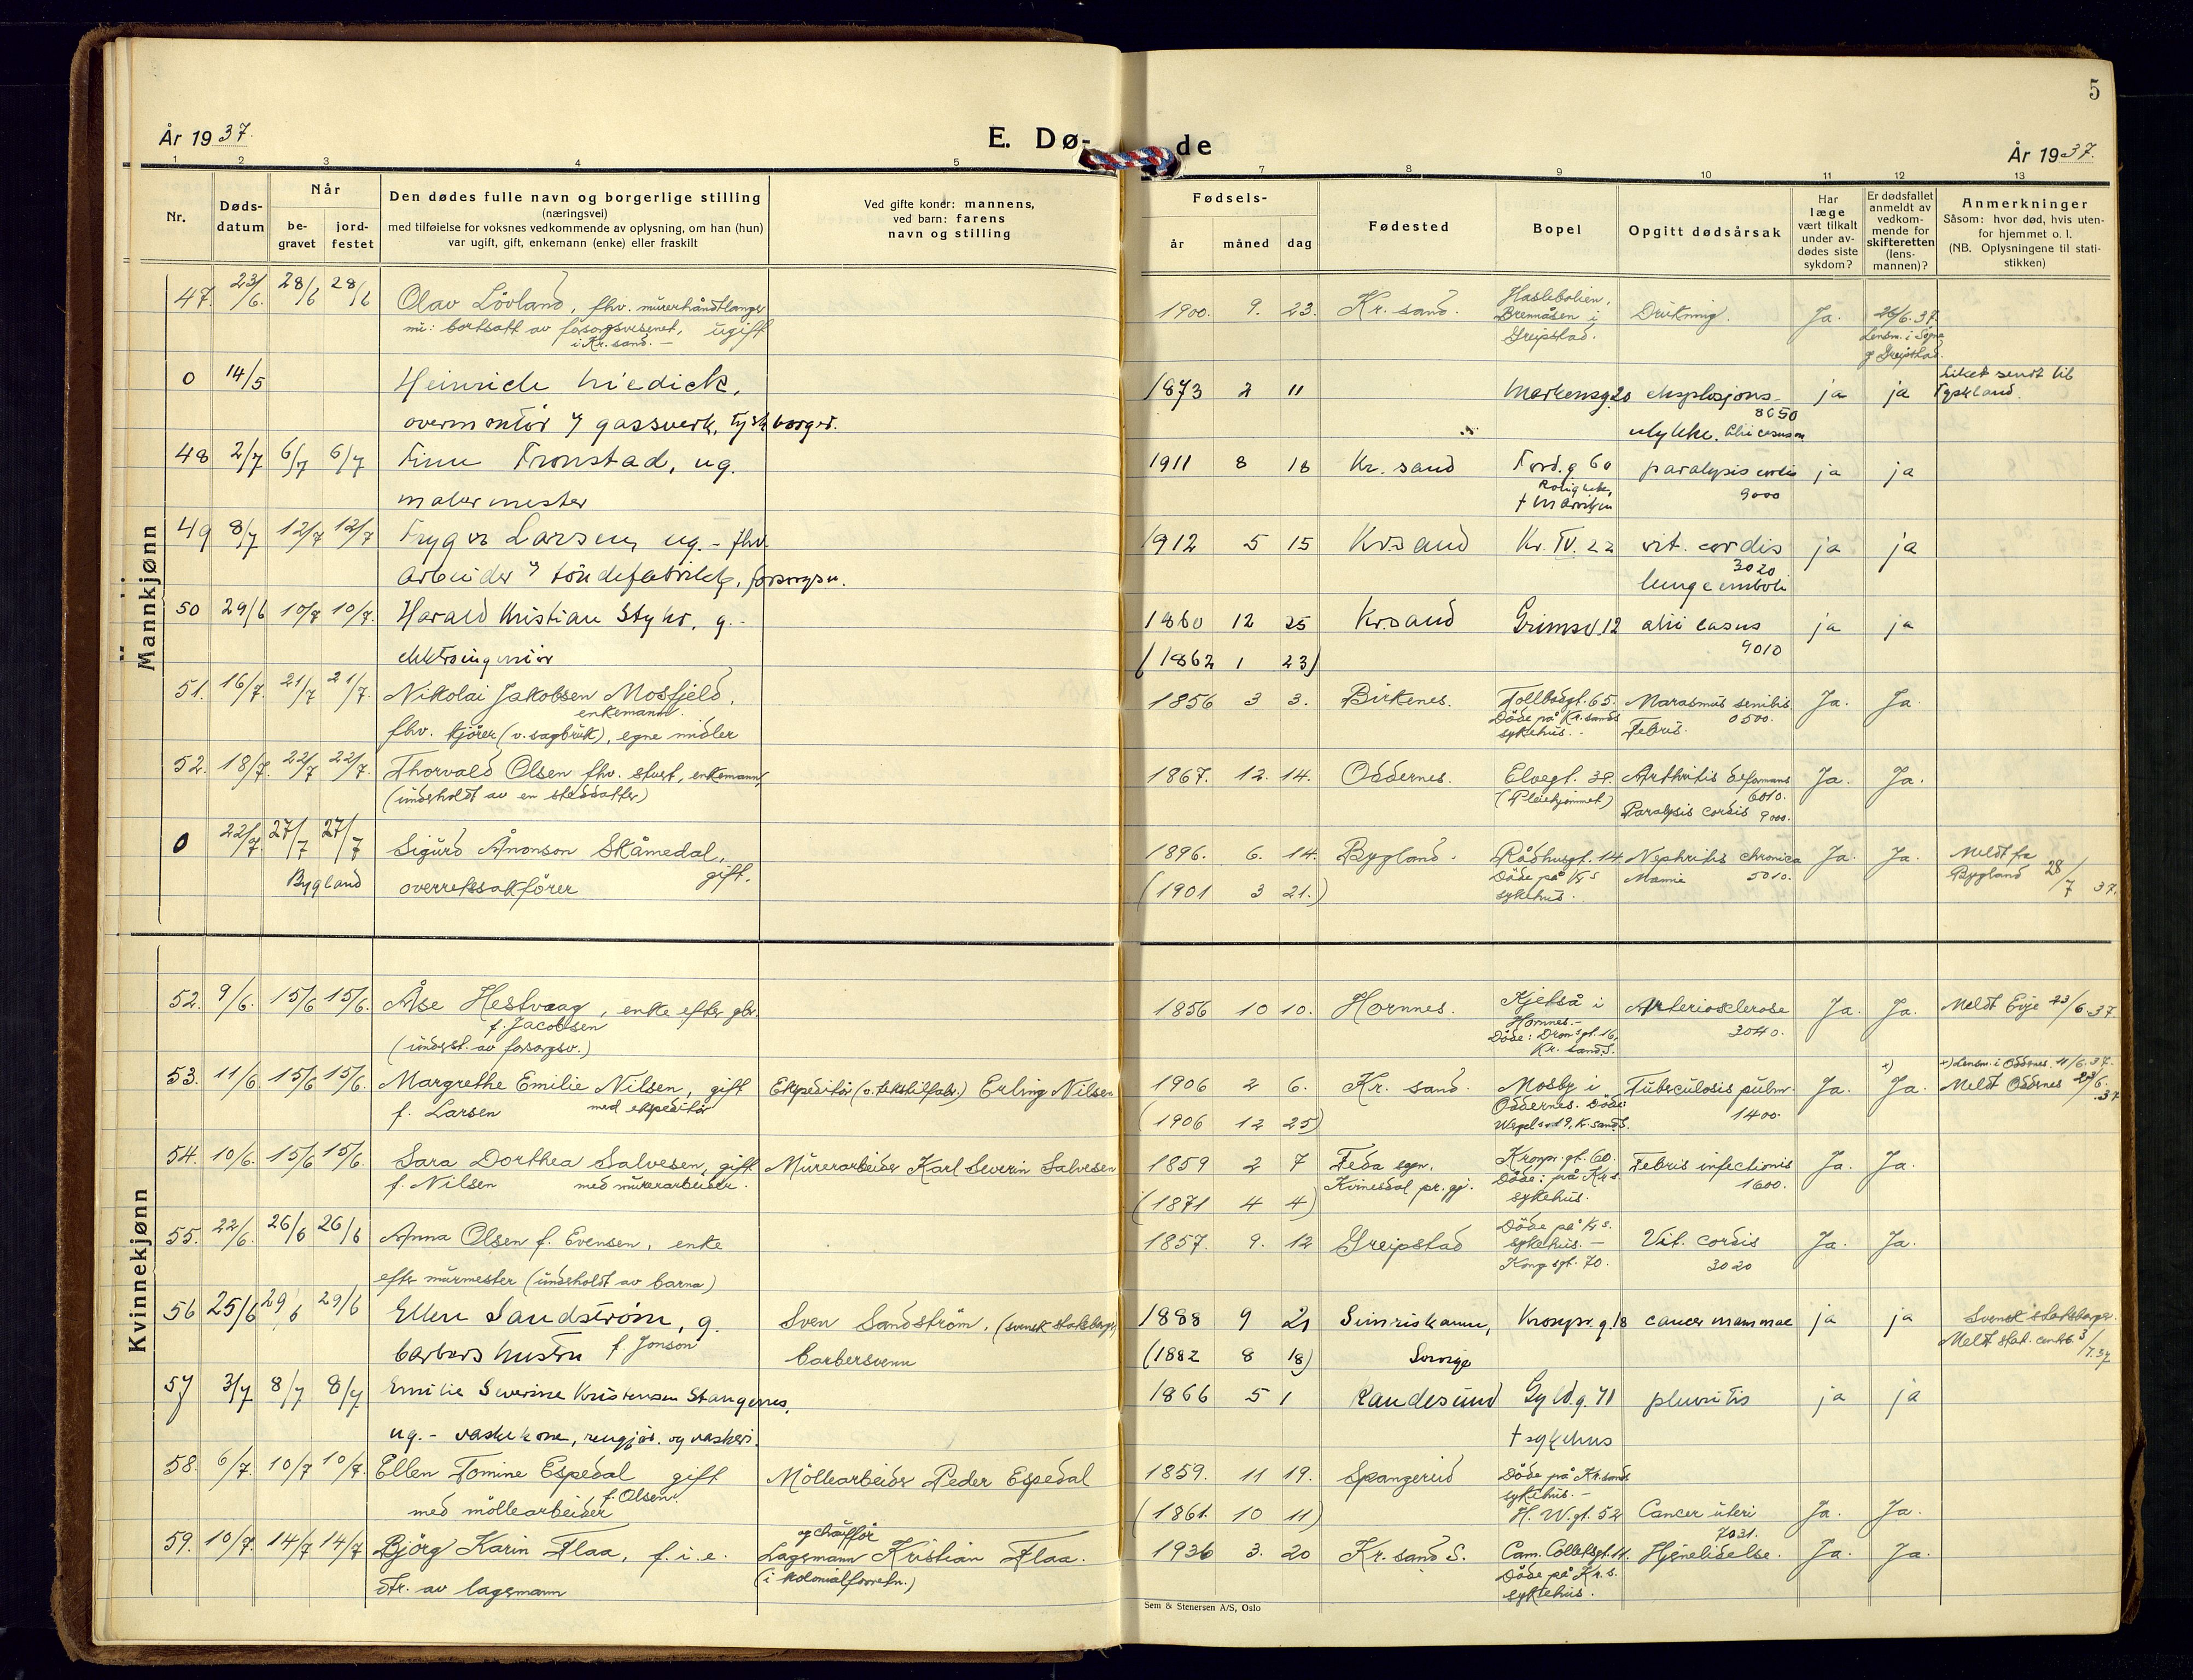 5
År 1937.
E. Dø-
de
År 1937.
1 2 3 4 5 7 8 9 10 11 12 13
Nr.
Døds-
datum
Når
be-
gravet
jord-
festet
Den dødes fulle navn og borgerlige stilling
(næringsvei)
med tilføielse for voksnes vedkommende av oplysning, om han (hun)
var ugift, gift, enkemann (enke) eller fraskilt
Ved gifte koner: mannens,
ved barn: farens
navn og stilling
Fødsels-
år måned dag
Fødested
Bopel
Opgitt dødsårsak
Har
læge
vært tilkalt
under av-
dødes siste
sykdom?
Er dødsfallet
anmeldt av
vedkom-
mende for
skifteretten
(lens-
mannen)?
Anmerkninger
Såsom: hvor død, hvis uten-
for hjemmet o. l.
(NB. Oplysningene til stati-
stikken)
Mannkjønn
47. 23/6. 28/6 28/6 Olav Lövland, fhv. murerhåndtlanger
nu: bortsatt av forsorgsvesenet, ugift
i Kr.sand. –
1900. 9. 23. Kr. sand. Haslebolien, Bremåsen i Greipstad. Drukning. Ja. 26/6.37.
Lensm. i Søgne
og Greipstad.
0 14/5 Heinrich Niedick,
overmontör v/ gassverk, tysk borger.
1873 2 11 Markensg. 20 eksplosjons- ja ja Liket sendt til
Tyskland.
8650
ulykke. Alii casus m
48 2/7 6/7 6/7 Finn Tronstad, ug.
malermester
1911 8 18 Kr. sand Tord.g 60 paralysis cordis ja ja
9000
49 8/7 12/7 12/7 Trygve Larsen, ug. – fhv.
arbeider v/ töndefabrikk, forsorgsv.
1912 5 15 Kr.sand Kr. IV. 22 vit. cordis ja ja
3020
lungeemboli
50 29/6 10/7 10/7. Harald Kristian Styhr, g. –
elektroingeniör
1860 12 25 Kr.sand Grimsv.12 alii casus ja ja
9010
(1862 1 23)
51. 16/7. 21/7 21/7. Nikolai Jakobsen Mosfjeld,
enkemann.
fhv. kjörer (v. sagbruk), egne midler
1856 3 3. Birkenes. Tollbodgt. 65. Marasmus senilis Ja. Ja.
Döde på Kr.sands
sykehus. –
0500.
Febris.
52. 18/7. 22/7 22/7. Thorvald Olsen fhv. stuert, enkemann,
(underholdt av en steddatter)
1867. 12. 14. Oddernes. Elvegt. 39. Arthritis deformans Ja. Ja.
(Pleiehjemmet)
6010.
Paralysis cordis 9000.
0 22/7. 27/7 27/7 Sigurd Ånonson Skåmedal,
gift.
Bygland overrettssakförer
1896. 6. 14. Bygland. Rådhusgt. 14. Nephritis chronica Ja. Ja. Meldt fra
Bygland 28/7 37.
Döde på Kr.s
sykehus.
5010.
(1901 3 21.)
Kvinnekjønn
52. 9/6. 15/6 15/6. Åse Hestvaag, enke efter gbr.
f. Jacobsen
(underst. av forsorgsv.)
1856 10 10. Hornnes. Kjetså i Arteriosclerose Ja. Ja. Meldt Evje 23/6.37.
Hornnes. –
Döde: Dronsgt. 16,
Kr. sand S.
3040.
53. 11/6 15/6 15/6. Margrethe Emilie Nilsen, gift
f. Larsen med ekspeditör
Ekspeditör (v. tekstilfabr.) Erling Nilsen
1906 2 6. Kr. sand. Mosby i Tuberculosis pulm. Ja. Ja.
x) Lensm. i Oddernes. 11/6.37.
Meldt Oddernes 23/6.37
Oddernes. Döde:
1400.
(1906 12 25)
54. 10/6. 15/6 15/6. Sara Dorthea Salvesen, gift
f. Nilsen med murerarbeider.
Murerarbeider Karl Severin Salvesen
1859 2 7 Feda sogn, Kronpr.gt. 60. Febris infectionis Ja. Ja.
Kvinesdal pr.gj. Döde: på Kr.s.
sykehus.
1600.
(1871 4 4)
55. 22/6. 26/6 26/6 Anna Olsen f. Evensen, enke
efter murmester (underholdt av barna)
1857. 9. 12 Greipstad Döde på Kr.s.
sykehus. –
Kongsgt. 70.
Vit. cordis Ja. Ja.
3020
56 25/6 29/6 29/6 Ellen Sandström, g.
barbers hustru f. Jonson
Sven Sandström. (svensk statsborger)
barbersvenn
1888 9 21 Simriskamn, Kronpr.g.18 cancer mammae ja ja Svensk statsborger.
Meldt stat. centrb. 3/7.37
(1882 8 18) Sverige
57 3/7 8/7 8/7 Emilie Severine Kristensen Stangenes,
ug. – vaskekone, rengjör. og vaskeri.
1866 5 1 Randesund Gyld.g. 71 pleuritis ja ja
† sykehus
58. 6/7. 10/7 10/7. Ellen Tomine Espedal gift
f. Olsen.
med möllearbeider
Möllearbeider Peder Espedal
1859. 11 19. Spangereid Döde på Kr.sands
sykehus. –
(1861. 10 11) H. W. gt. 52 Cancer uteri Ja. Ja.
7031.
59. 10/7. 14/7 14/7 Björg Karin Flaa, f. i. e.
dtr. av lagermann
og chauffør
Lagermann Kristian Flaa.
(i kolonialforretn.)
1936 3. 20 Kr.sand S. Cam. Colletsgt. 11. Hjernelidelse. Ja. Ja.
Döde på Kr.s.
sykehus.
Sem & Stenersen A/S, Oslo